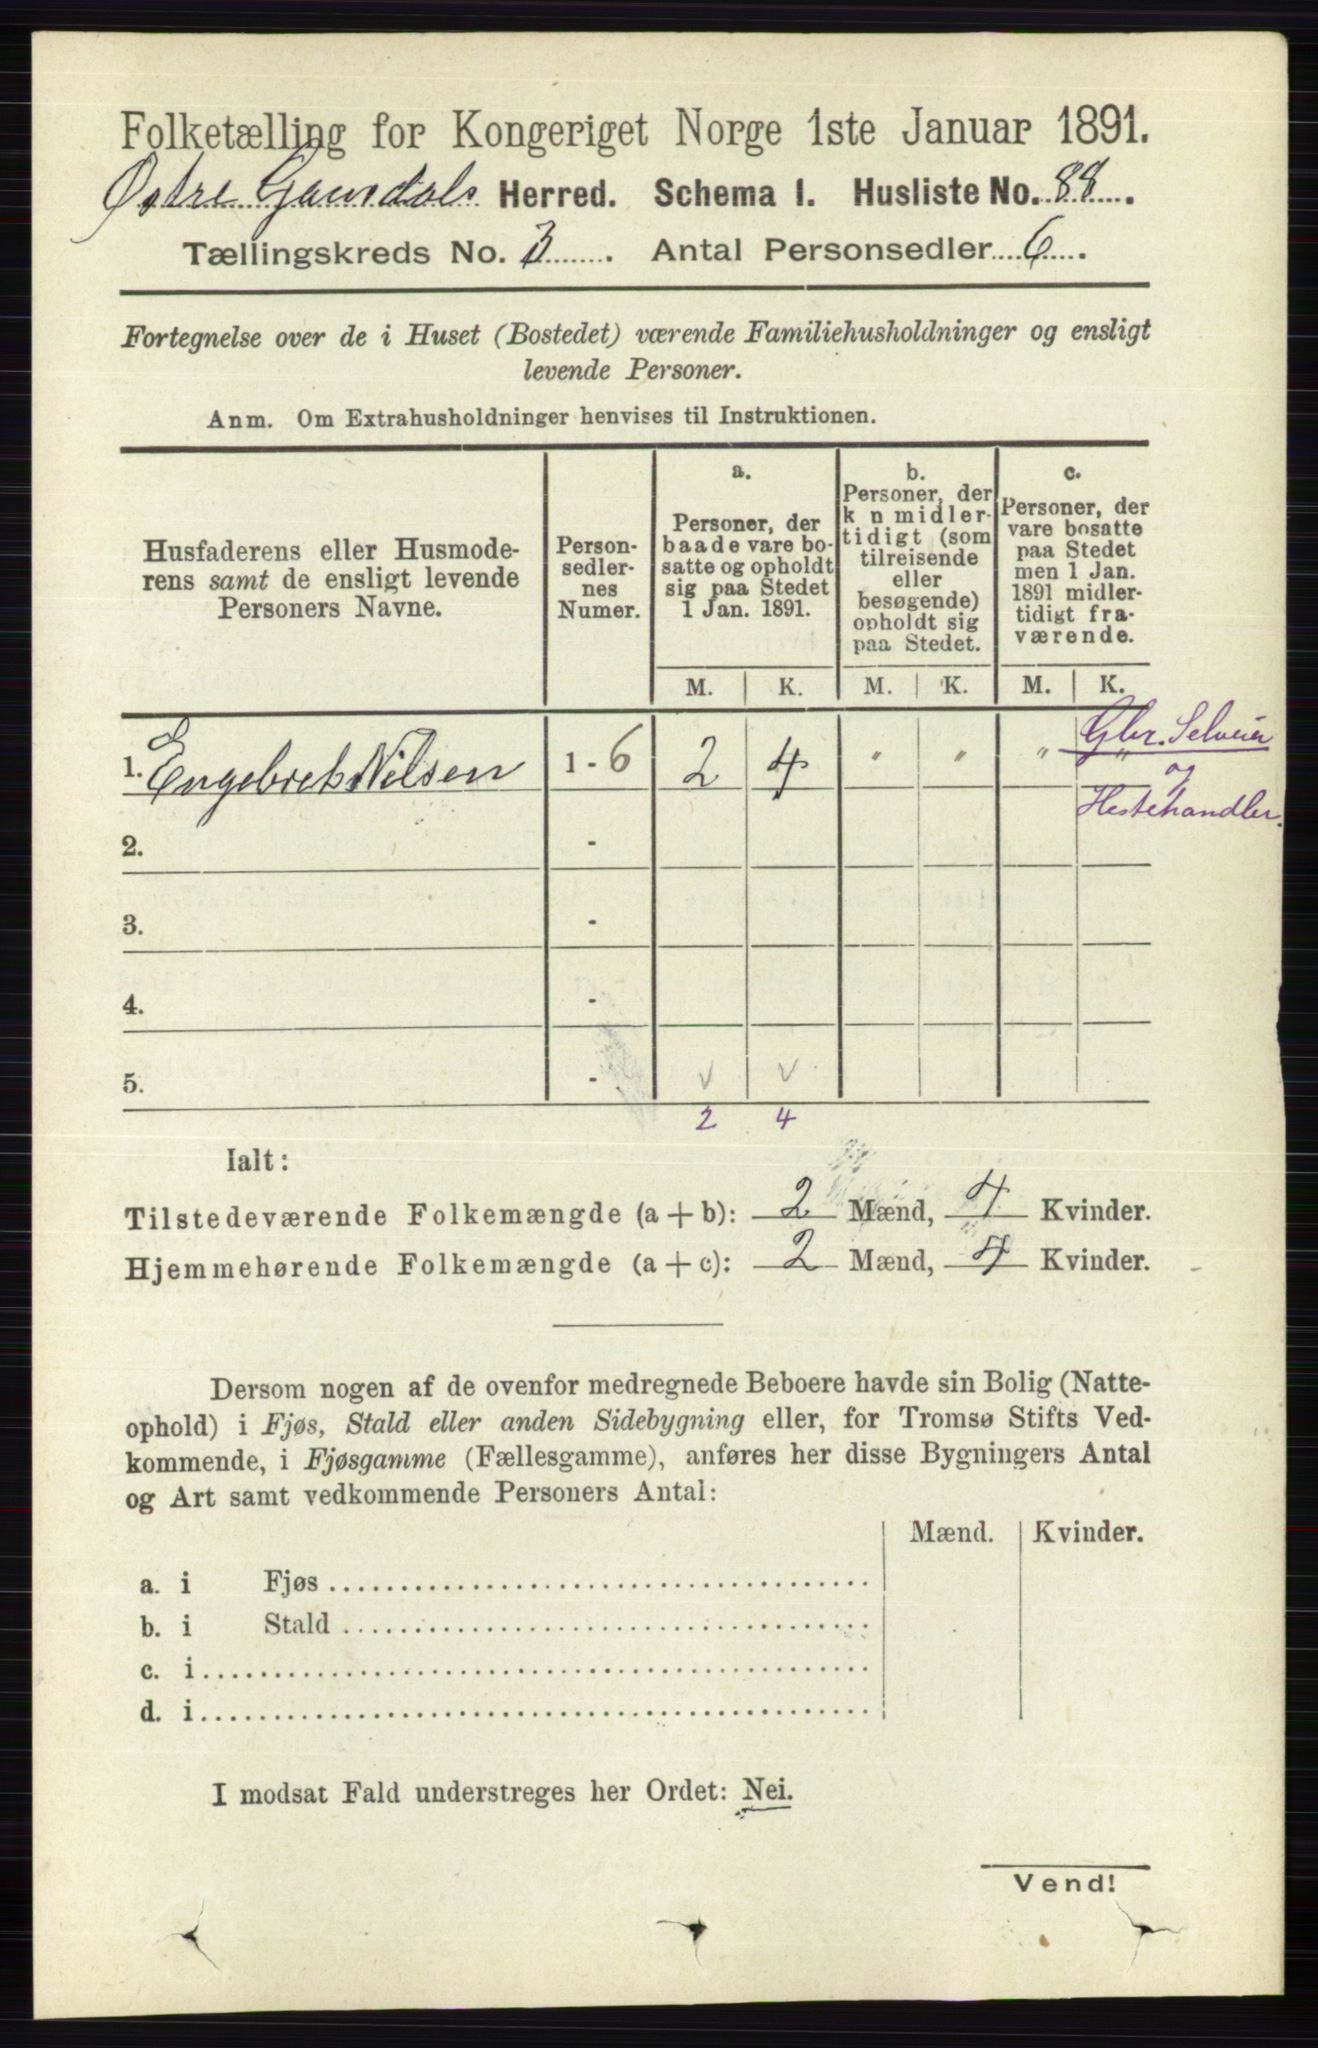 Folketælling for Kongeriget Norge 1ste Januar 1891.
Østre Gausdals Herred. Schema I. Husliste No. 88.
Tællingskreds No. 3. Antal Personsedler 6.
Fortegnelse over de i Huset (Bostedet) værende Familiehusholdninger og ensligt
levende Personer.
Anm. Om Extrahusholdninger henvises til Instruktionen.
Husfaderens eller Husmode-
rens samt de ensligt levende
Personers Navne.
Person-
sedler-
nes
Numer.
a.
Personer, der
baade vare bo-
satte og opholdt
sig paa Stedet
1 Jan. 1891.
b.
Personer, der
k n midler-
tidigt (som
tilreisende
eller
besøgende)
opholdt sig
paa Stedet.
c.
Personer, der
vare bosatte
paa Stedet
men 1 Jan.
1891 midler-
tidigt fra-
værende.
M. K. M. K. M. K.
1. Engebret Nilsen 1 - 6 2 4 " " " "
Gbr. Selveier
og
Hestehandler.
2. -
3. -
4. -
5. - v v
2 4
Ialt:
Tilstedeværende Folkemængde (a + b): 2 Mænd, 4 Kvinder.
Hjemmehørende Folkemængde (a + c): 2 Mænd, 4 Kvinder.
Dersom nogen af de ovenfor medregnede Beboere havde sin Bolig (Natte-
ophold) i Fjøs, Stald eller anden Sidebygning eller, for Tromsø Stifts Ved-
kommende, i Fjøsgamme (Fællesgamme), anføres her disse Bygningers Antal
og Art samt vedkommende Personers Antal:
Mænd. Kvinder.
a. i Fjøs
b. i Stald
c. i
d. i
I modsat Fald understreges her Ordet: Nei.
Vend!